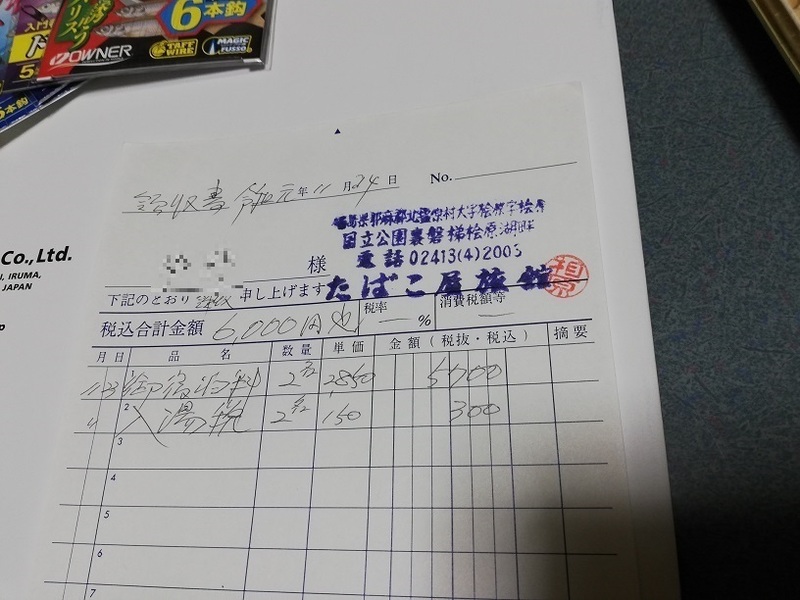 入門
5
6本鈎
OWNER
TAFF WIRE
MAGIC FUSSO
6本鈎
Co., Ltd.
I, IRUMA,
JAPAN
領収書 令和元年11月24日
No.
福島県耶麻郡北塩原村大字桧原字桧原
国立公園裏磐梯桧原湖畔
電話 02413(4)2003
様
たばこ屋旅館
下記のとおり領収申し上げます
税込合計金額 6,000円也 税率 % 消費税額等
月 日 品 名 数量 単価 金額(税抜・税込) 摘要
11 23 御宿泊料 2名 2850 5700
〃 2 入湯税 2名 150 300
3
4
5
6
7